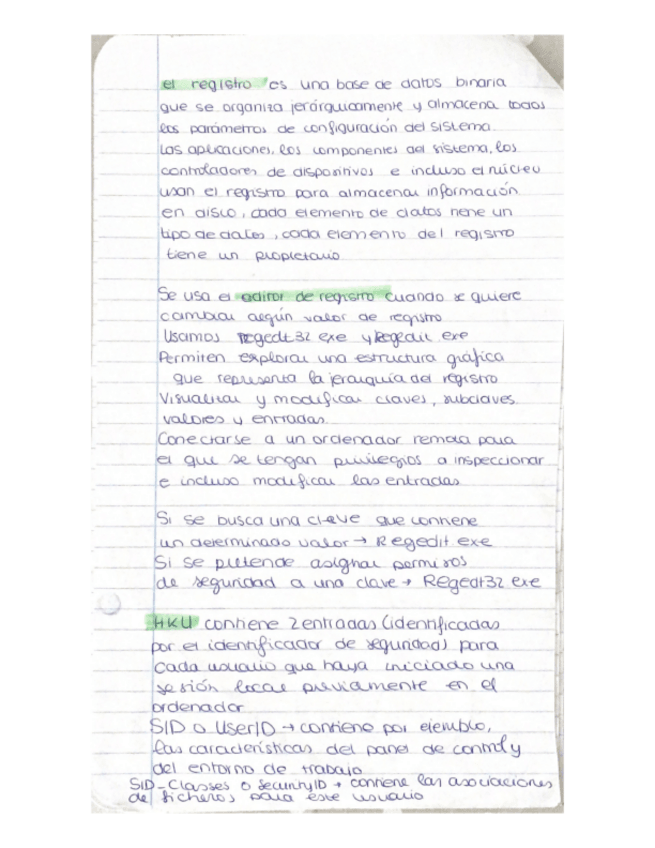 el registro es una base de datos binaria
que se organiza jerárquicamente y almacena todos
los parámetros de configuración del sistema.
Las aplicaciones, los componentes del sistema, los
controladores de dispositivos e incluso el núcleo
usan el registro para almacenar información
en disco, cada elemento de datos tiene un
tipo de datos, cada elemento del registro
tiene un propietario
Se usa el editor de registro cuando se quiere
cambiar algún valor de registro
Usamos regedt32 exe y Regedit exe
Permiten explorar una estructura gráfica
que representa la jerarquía del registro
Visualizar y modificar claves, subclaves
valores y entradas.
Conectarse a un ordenador remoto para
el que se tengan privilegios a inspeccionar
e incluso modificar las entradas
Si se busca una clave que contiene
un determinado valor → Regedit.exe
Si se pretende asignar permisos
de seguridad a una clave → Regedt32 exe
HKU contiene 2 entradas (identificadas
por el identificador de seguridad) para
cada usuario que haya iniciado una
sesión local previamente en el
ordenador
SID o UserID → contiene por ejemplo,
las características del panel de control y
del entorno de trabajo
SID-Classes o SecurityID → contiene las asociaciones
de ficheros para este usuario